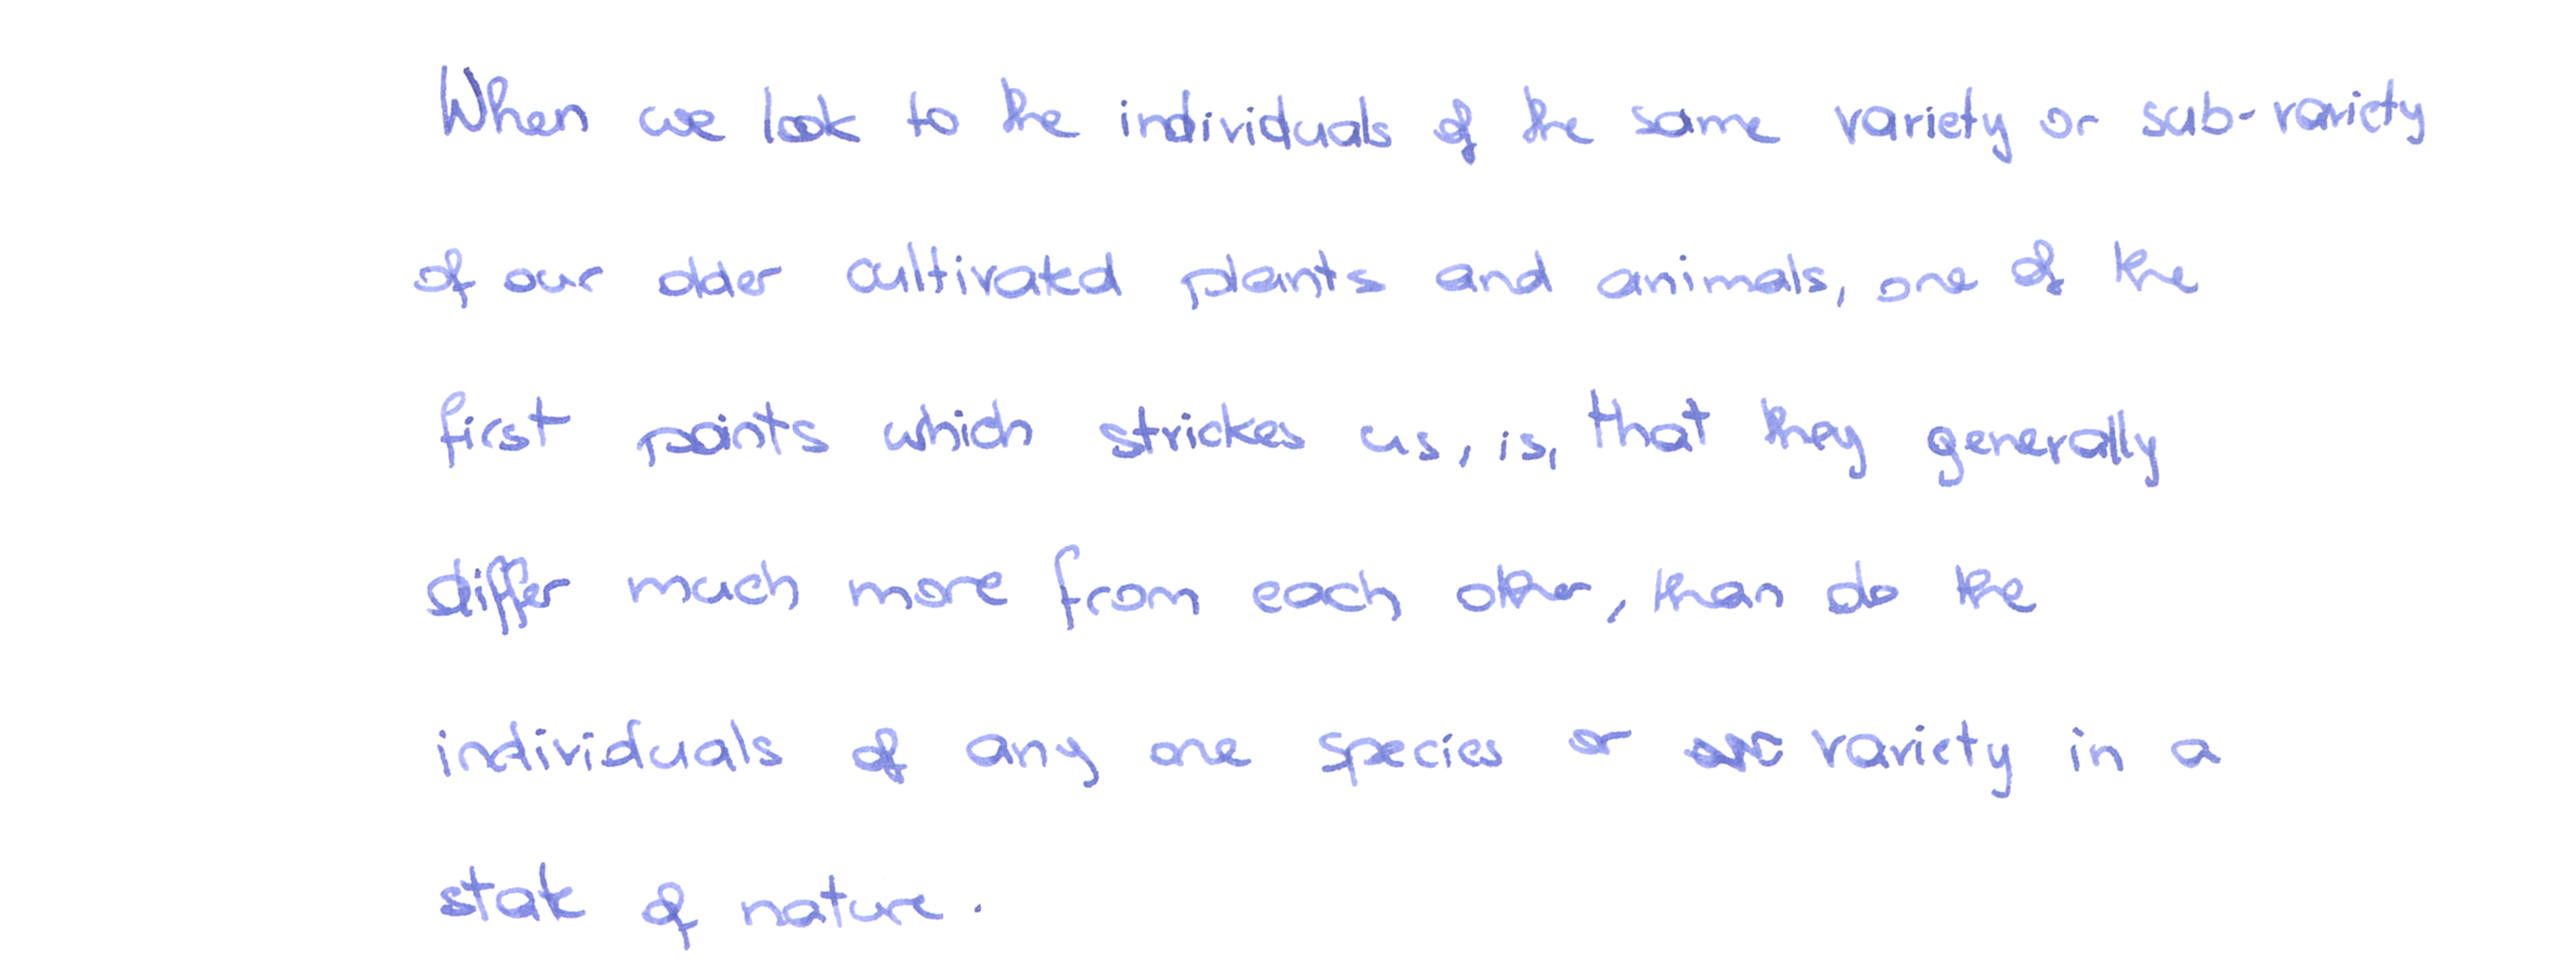 When we look to the individuals of the same variety or sub-variety
of our older cultivated plants and animals, one of the
first points which strickes us, is, that they generally
differ much more from each other, than do the
individuals of any one species or variety in a
state of nature.